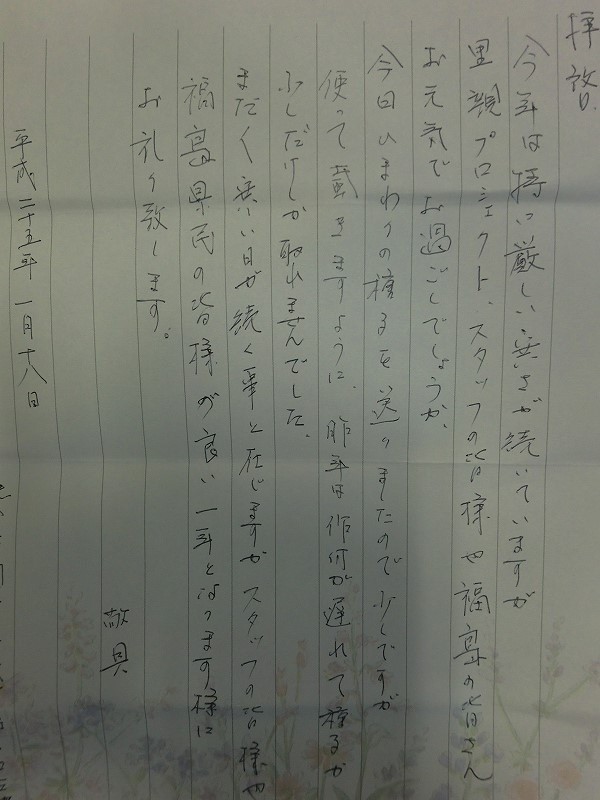 拝啓
今年は特に厳しい寒さが続いていますが
里親プロジェクト、スタッフの皆様や福島の皆さん
お元気でお過ごしでしょうか、
今回ひまわりの種るを送りましたので少しですが
使って戴きますように、昨年は作付が遅れて種るが
少しだけしか取れませんでした、
まだく寒い日が続く事と存じますがスタッフの皆様や
福島県民の皆様が良い一年となります様に
お礼り致します。
敬具
平成二十五年一月十八日